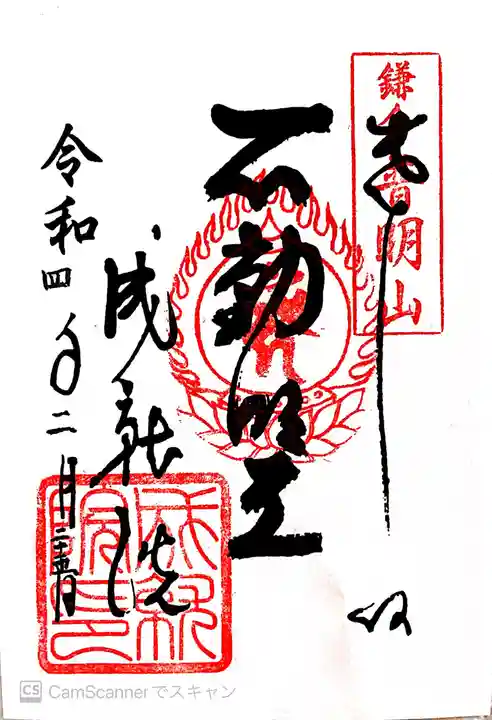 鎌倉普明山
奉拝
不動明王
成就院
令和四年二月二十五日
成就院印
CS CamScannerでスキャン